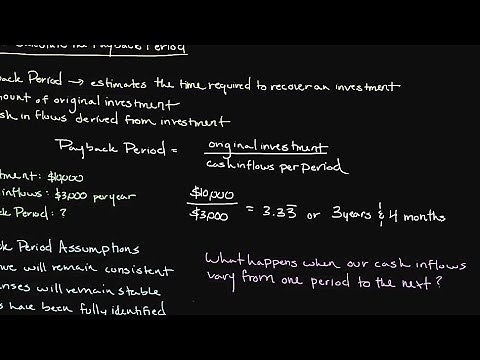 the Payback Period
back Period → estimates the time required to recover an investment
mount of original investment
ash in flows derived from investment
Payback Period = original investment
cash inflows per period
tment: $10,000
inflows: $3,000 per year
ck Period: ?
$10,000
$3,000 = 3.33̅ or 3 years & 4 months
ck Period Assumptions
nue will remain consistent
enses will remain stable
s have been fully identified
What happens when our cash inflows
vary from one period to the next?